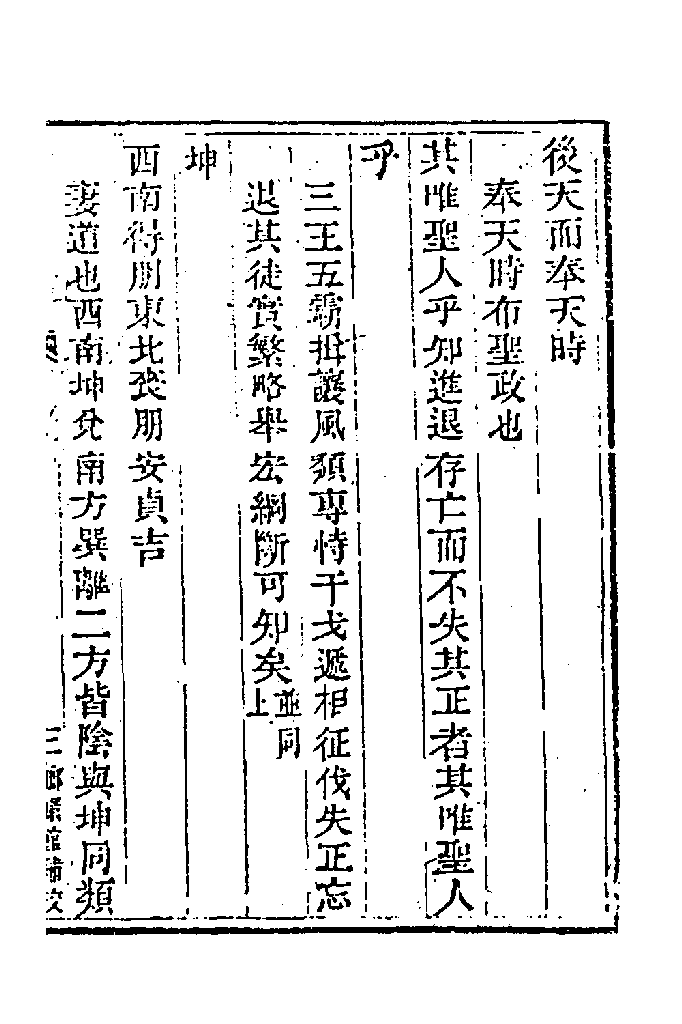 後天而奉天時
奉天時布聖政也
其唯聖人乎知進退存亡而不失其正者其唯聖人
乎
三王五霸揖讓風頹專恃干戈遞相征伐失正忘
退其徒實繁略舉宏綱斷可知矣並同上
坤
西南得朋東北喪朋安貞吉
妻道也西南坤兌南方巽離二方皆陰與坤同類
三 嫏嬛館補校